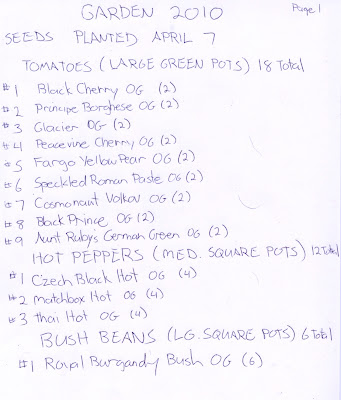 GARDEN 2010 Page 1
SEEDS PLANTED APRIL 7
TOMATOES (LARGE GREEN POTS) 18 Total
#1 Black Cherry OG (2)
#2 Principe Borghese OG (2)
#3 Glacier OG (2)
#4 Peacevine Cherry OG (2)
#5 Fargo Yellow Pear OG (2)
#6 Speckled Roman Paste OG (2)
#7 Cosmonaut Volkov OG (2)
#8 Black Prince OG (2)
#9 Aunt Ruby's German Green OG (2)
HOT PEPPERS (MED. SQUARE POTS) 12 Total
#1 Czech Black Hot OG (4)
#2 Matchbox Hot OG (4)
#3 Thai Hot OG (4)
BUSH BEANS (LG. SQUARE POTS) 6 Total
#1 Royal Burgandy Bush OG (6)